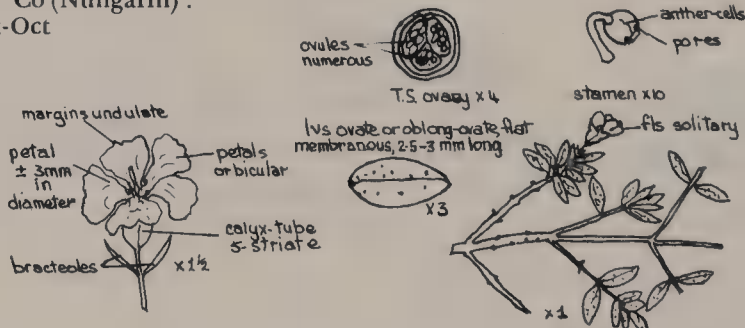 Co (Nungarin) .
-Oct
ovules
numerous
T.S. ovary x 4
anther-cells
pores
stamen x10
margins undulate
petal
± 3mm
in
diameter
petals
orbicular
calyx-tube
5-striate
bracteoles
x 1½
lvs ovate or oblong-ovate, flat
membranous, 2·5-3 mm long
x3
fls solitary
x 1